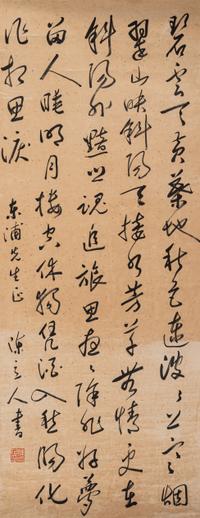 碧雲天黃葉地秋色連波々上寒烟
翠山映斜陽天接水芳草無情更在
斜陽外黯鄉魂追旅思夜々除非好夢
留人睡明月樓高休獨倚酒入愁腸化
作相思淚
東浦先生正
陳立人書